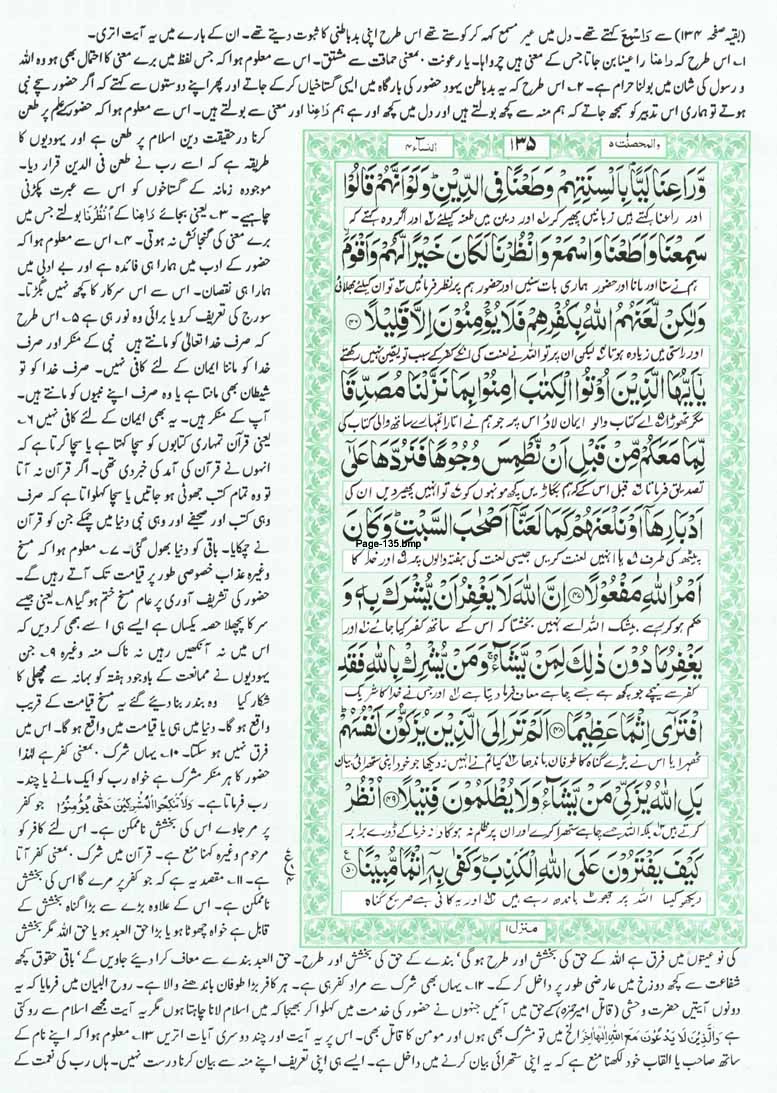 (بقیہ صفحہ ۱۳۴) سے وَاسْمَعْ کہتے تھے۔ دل میں غیر مسمع کہہ کر کوستے تھے اس طرح اپنی بدباطنی کا ثبوت دیتے تھے۔ ان کے بارے میں یہ آیت اتری۔
۱۔ اس طرح کہ رَاعِنَا راعینا بن جاتا جس کے معنی ہیں چرواہا۔ یا رعونت بمعنی حماقت سے مشتق۔ اس سے معلوم ہوا کہ جس لفظ میں برے معنی کا احتمال بھی ہو وہ اللہ
و رسول کی شان میں بولنا حرام ہے۔ ۲۔ اس طرح کہ یہ بدباطن یہود حضور کی بارگاہ میں ایسی گستاخیاں کر کے جاتے اور پھر اپنے دوستوں سے کہتے کہ اگر حضور سچے نبی
ہوتے تو ہماری اس تدبیر کو سمجھ جاتے کہ ہم منہ سے کچھ بولتے ہیں اور دل میں کچھ اور ہے ہم رَاعِنَا اور معنی سے بولتے ہیں۔ اس سے معلوم ہوا کہ حضور کے علم پر طعن
کرنا درحقیقت دین اسلام پر طعن ہے اور یہودیوں کا
طریقہ ہے کہ اسے رب نے طعن فی الدین قرار دیا۔
موجودہ زمانہ کے گستاخوں کو اس سے عبرت پکڑنی
چاہیے۔ ۳۔ یعنی بجائے رَاعِنَا کے اُنْظُرْنَا بولتے جس میں
برے معنی کی گنجائش نہ ہوتی۔ ۴۔ اس سے معلوم ہوا کہ
حضور کے ادب میں ہمارا ہی فائدہ ہے اور بے ادبی میں
ہمارا ہی نقصان۔ اس سے اس سرکار کا کچھ نہیں بگڑتا۔
سورج کی تعریف کرو یا برائی وہ نور ہی ہے ۵۔ اس طرح
کہ صرف خدا تعالیٰ کو مانتے ہیں نبی کے منکر اور صرف
خدا کو ماننا ایمان کے لئے کافی نہیں۔ صرف خدا کو تو
شیطان بھی مانتا ہے یا وہ صرف اپنے نبیوں کو مانتے ہیں۔
آپ کے منکر ہیں۔ یہ بھی ایمان کے لئے کافی نہیں ۶۔
یعنی قرآن تمہاری کتابوں کو سچا کہتا ہے یا سچا کرتا ہے کہ
انہوں نے قرآن کی آمد کی خبر دی تھی۔ اگر قرآن نہ آتا
تو وہ تمام کتب جھوٹی ہو جاتیں یا سچا کہلواتا ہے کہ صرف
وہی کتب اور صحیفے اور وہی نبی دنیا میں چمکے جن کو قرآن
نے چمکایا۔ باقی کو دنیا بھول گئی۔ ۷۔ معلوم ہوا کہ مسخ
وغیرہ عذاب خصوصی طور پر قیامت تک آتے رہیں گے۔
حضور کی تشریف آوری پر عام مسخ ختم ہو گیا ۸۔ یعنی جیسے
سر کا پچھلا حصہ یکساں ہے ایسے ہی اسے بھی کر دیں کہ
اس میں نہ آنکھیں رہیں نہ ناک منہ وغیرہ ۹۔ جن
یہودیوں نے ممانعت کے باوجود ہفتہ کو بہانہ سے مچھلی کا
شکار کیا وہ بندر بنا دیئے گئے یہ مسخ قیامت کے قریب
واقع ہو گا۔ دنیا میں ہی یا قیامت میں واقع ہو گا۔ اس میں
فرق نہیں ہو سکتا۔ ۱۰۔ یہاں شرک بمعنی کفر ہے لہٰذا
حضور کا ہر منکر مشرک ہے خواہ رب کو ایک مانے یا چند۔
رب فرماتا ہے۔ وَلَا تَنْكِحُوا الْمُشْرِكِيْنَ حَتّٰى يُؤْمِنُوْا جو کفر
پر مر جاوے اس کی بخشش ناممکن ہے۔ اس لئے کافر کو
مرحوم وغیرہ کہنا منع ہے۔ قرآن میں شرک بمعنی کفر آتا
ہے۔ ۱۱۔ مقصد یہ ہے کہ جو کفر پر مرے گا اس کی بخشش
ناممکن ہے۔ اس کے علاوہ بڑے سے بڑا گناہ بخشش کے
قابل ہے خواہ چھوٹا ہو یا بڑا حق العبد ہو یا حق اللہ مگر بخشش
والمحصنٰت ۵ ۱۳۵ النسآء ۴
وَّرَاعِنَا لَيًّۢا بِاَلْسِنَتِهِمْ وَطَعْنًا فِى الدِّيْنِ ؕ وَلَوْ اَنَّهُمْ قَالُوْا
اور راعنا کہتے ہیں زبانیں پھیر کر ۱ اور دین میں طعنہ کیلئے ۲ اور اگر وہ کہتے کہ
سَمِعْنَا وَاَطَعْنَا وَاسْمَعْ وَانْظُرْنَا لَكَانَ خَيْرًا لَّهُمْ وَاَقْوَمَ
ہم نے سنا اور مانا اور حضور ہماری بات سنیں اور حضور ہم پر نظر فرمائیں ۳ تو ان کیلئے بھلائی
وَلٰكِنْ لَّعَنَهُمُ اللّٰهُ بِكُفْرِهِمْ فَلَا يُؤْمِنُوْنَ اِلَّا قَلِيْلًا ﴿۴۶﴾
اور راستی میں زیادہ ہوتا ۴ لیکن ان پر تو اللہ نے لعنت کی انکے کفر کے سبب تو یقین نہیں رکھتے
يٰٓاَيُّهَا الَّذِيْنَ اُوْتُوا الْكِتٰبَ اٰمِنُوْا بِمَا نَزَّلْنَا مُصَدِّقًا
مگر تھوڑا ۵ اے کتاب والو ایمان لاؤ اس پر جو ہم نے اتارا تمہارے ساتھ والی کتاب کی
لِّمَا مَعَكُمْ مِّنْ قَبْلِ اَنْ نَّطْمِسَ وُجُوْهًا فَنَرُدَّهَا عَلٰٓى
تصدیق فرماتا ۶ قبل اس کے کہ ہم بگاڑیں کچھ مونہوں کو ۷ تو انہیں پھیر دیں ان کی
اَدْبَارِهَآ اَوْ نَلْعَنَهُمْ كَمَا لَعَنَّآ اَصْحٰبَ السَّبْتِ ؕ وَكَانَ
پیٹھ کی طرف ۸ یا انہیں لعنت کریں جیسی لعنت کی ہفتہ والوں پر ۹ اور خدا کا
Page-135.bmp
اَمْرُ اللّٰهِ مَفْعُوْلًا ﴿۴۷﴾ اِنَّ اللّٰهَ لَا يَغْفِرُ اَنْ يُّشْرَكَ بِهٖ وَ
حکم ہو کر رہے بیشک اللہ اسے نہیں بخشتا کہ اس کے ساتھ کفر کیا جائے ۱۰ اور
يَغْفِرُ مَا دُوْنَ ذٰلِكَ لِمَنْ يَّشَآءُ ۚ وَمَنْ يُّشْرِكْ بِاللّٰهِ فَقَدِ
کفر سے نیچے جو کچھ ہے جسے چاہے معاف فرما دیتا ہے ۱۱ اور جس نے خدا کا شریک
افْتَرٰٓى اِثْمًا عَظِيْمًا ﴿۴۸﴾ اَلَمْ تَرَ اِلَى الَّذِيْنَ يُزَكُّوْنَ اَنْفُسَهُمْ ؕ
ٹھہرایا اس نے بڑے گناہ کا طوفان باندھا ۱۲ کیا تم نے انہیں نہ دیکھا جو خود اپنی ستھرائی بیان
بَلِ اللّٰهُ يُزَكِّىْ مَنْ يَّشَآءُ وَلَا يُظْلَمُوْنَ فَتِيْلًا ﴿۴۹﴾ اُنْظُرْ
کرتے ہیں ۱۳ بلکہ اللہ جسے چاہے ستھرا کرے اور ان پر ظلم نہ ہوگا دانہ خرما کے ڈورے برابر
كَيْفَ يَفْتَرُوْنَ عَلَى اللّٰهِ الْكَذِبَ ؕ وَكَفٰى بِهٖٓ اِثْمًا مُّبِيْنًا ﴿۵۰﴾
دیکھو کیسا اللہ پر جھوٹ باندھ رہے ہیں اور یہ کافی ہے صریح گناہ
منزل ۱
کی نوعیتوں میں فرق ہے اللہ کے حق کی بخشش اور طرح ہو گی، بندے کے حق کی بخشش اور طرح۔ حق العبد بندے سے معاف کرا دیئے جاویں گے، باقی حقوق کچھ
شفاعت سے کچھ دوزخ میں عارضی طور پر داخل کر کے۔ ۱۲۔ یہاں بھی شرک سے مراد کفر ہی ہے۔ ہر کافر بڑا طوفان باندھنے والا ہے۔ روح البیان میں فرمایا کہ یہ
دونوں آیتیں حضرت وحشی (قاتل امیر حمزہ) کے حق میں آئیں جنہوں نے حضور کی خدمت میں کہلوا کر بھیجا کہ میں اسلام لانا چاہتا ہوں مگر یہ آیت مجھے اسلام سے روکتی
ہے وَالَّذِيْنَ لَا يَدْعُوْنَ مَعَ اللّٰهِ اِلٰهًا اٰخَرَ الخ میں تو مشرک بھی ہوں اور مومن کا قاتل بھی۔ اس پر یہ آیت اور چند دوسری آیات اتریں ۱۳۔ معلوم ہوا کہ اپنے نام کے
ساتھ صاحب یا القاب خود لکھنا منع ہے کہ یہ اپنی ستھرائی بیان کرنے میں داخل ہے۔ ایسے ہی اپنی تعریف اپنے منہ سے بیان کرنا درست نہیں۔ ہاں رب کی نعمت کے